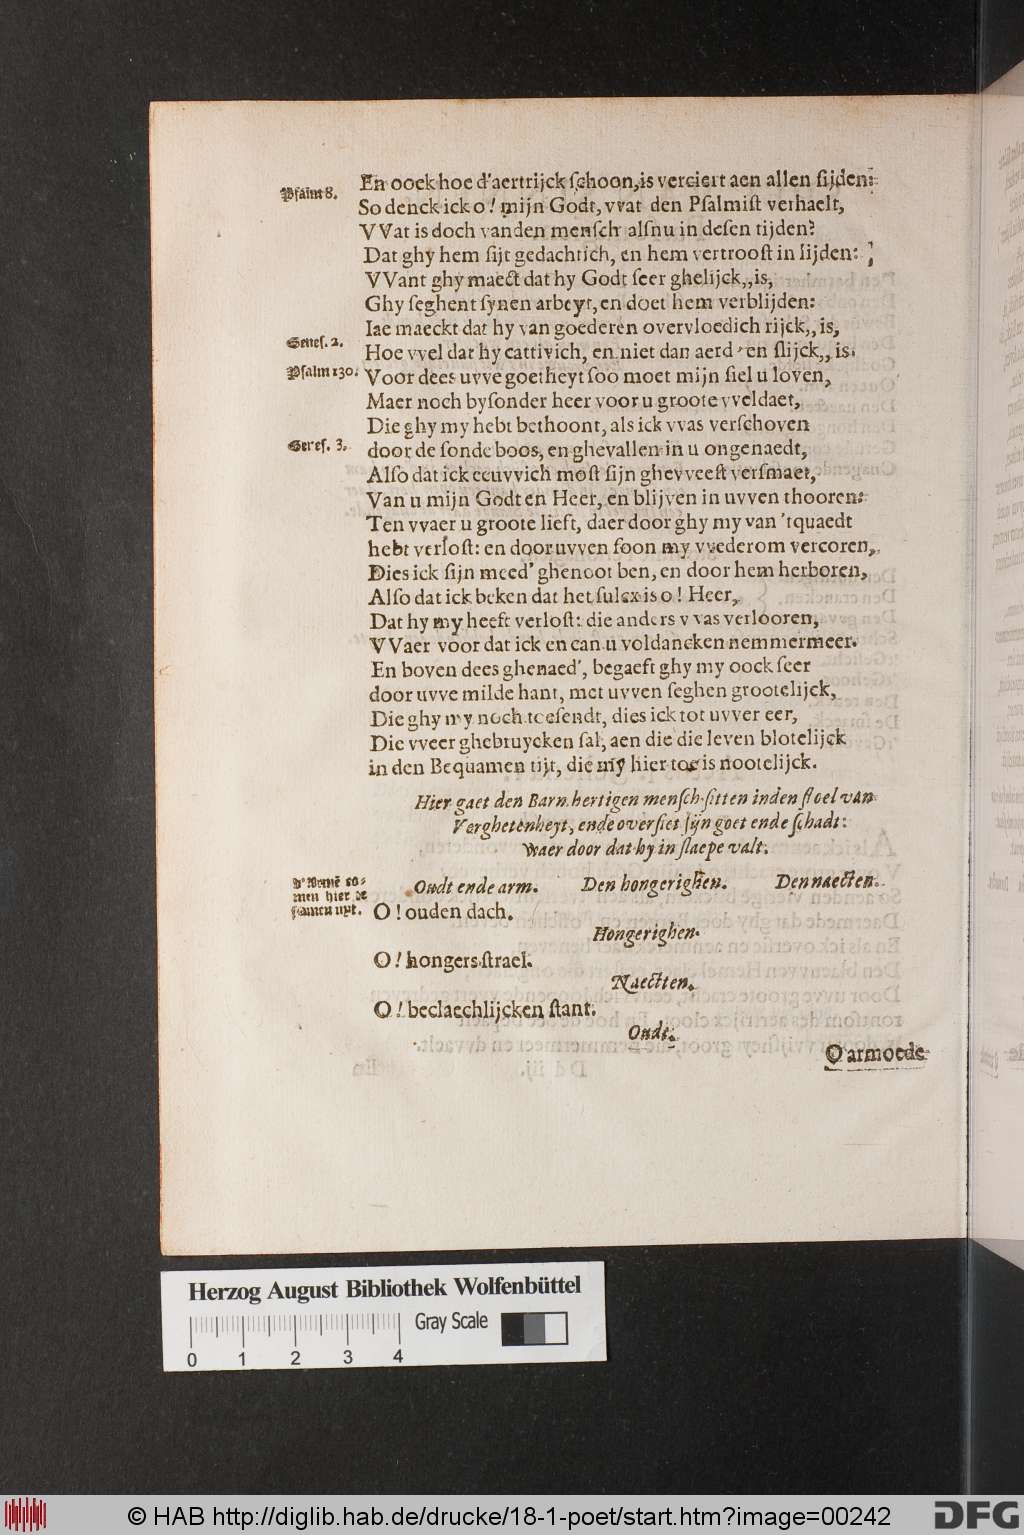 Psalm 8.
En oock hoe d'aertrijck schoon, is verciert aen allen sijden:
So denck ick o! mijn Godt, vvat den Psalmist verhaelt,
VVat is doch vanden mensch alsnu in desen tijden?
Dat ghy hem sijt gedachtich, en hem vertroost in lijden:
VVant ghy maect dat hy Godt seer ghelijck,, is,
Ghy seghent synen arbeyt, en doet hem verblijden:
Iae maeckt dat hy van goederen overvloedich rijck,, is,
Genes. 2.
Hoe vvel dat hy cattivich, en niet dan aerd' en slijck,, is.
Psalm 130.
Voor dees uvve goetheyt soo moet mijn siel u loven,
Maer noch bysonder heer voor u groote vveldaet,
Die ghy my hebt bethoont, als ick vvas verschoven
Genes. 3.
door de sonde boos, en ghevallen in u ongenaedt,
Also dat ick eeuvvich most sijn ghevveest versmaet,
Van u mijn Godt en Heer, en blijven in uvven thooren:
Ten vvaer u groote liest, daer door ghy my van 'tquaedt
hebt verlost: en door uvven soon my vvederom vercoren,
Dies ick sijn meed' ghenoot ben, en door hem herboren,
Also dat ick beken dat het sulcx is o! Heer,
Dat hy my heeft verlost: die anders vvas verlooren,
VVaer voor dat ick en can u voldancken nemmermeer.
En boven dees ghenaed', begaeft ghy my oock seer
door uvve milde hant, met uvven seghen grootelijck,
Die ghy my noch toesendt, dies ick tot uvver eer,
Die vveer ghebruycken sal, aen die die leven blotelijck
in den Bequamen tijt, die my hier toe is nootelijck.
Hier gaet den Barmhertigen mensch sitten inden stoel van
Verghetenheyt, ende oversiet sijn goet ende schadt:
waer door dat hy in slaepe valt.
D' Arme co-
men hier te
samen uyt.
Oudt ende arm. Den hongerighen. Den naecten.
O! ouden dach.
Hongerighen.
O! hongers strael.
Naectten.
O! beclaechlijcken stant.
Oudt.
O armoede
Herzog August Bibliothek Wolfenbüttel
Gray Scale
0 1 2 3 4
© HAB http://diglib.hab.de/drucke/18-1-poet/start.htm?image=00242
DFG